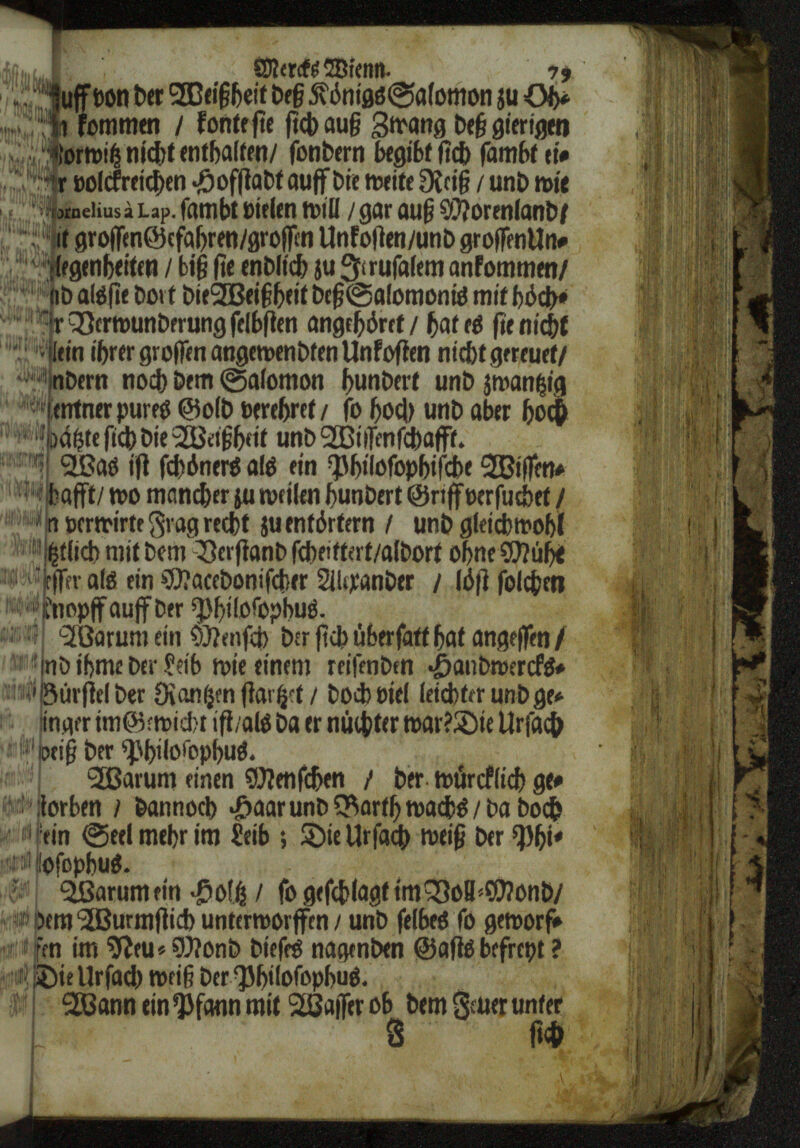 Mercks Wienn. 79
uff von der Weißheit deß Königs Salomon zu Oh⸗
kommen / konte sie sich auß Zwang deß gierigen
orwitz nicht enthalten/ sondern begibt sich sambt ei⸗
r volckreichen Hoffstadt auff die weite Reiß / und wie
ornelius à Lap. sambt vielen will / gar auß Morenland/
it grossen Gefahren/grossen Unkosten/und grossen Un⸗
legenheiten / biß sie endlich zu Jerusalem ankommen/
nd als sie dort die Weißheit deß Salomonis mit höch⸗
r Verwunderung selbsten angehöret / hat es sie nicht
llein ihrer grossen angewendten Unkosten nicht gereuet/
ndern noch dem Salomon hundert und zwantzig
entner pures Gold verehret / so hoch und aber hoch
hätzte sich die Weißheit und Wissenschafft.
Was ist schöners als ein Philosophische Wissen⸗
hafft/ wo mancher zu weilen hundert Griff versuchet /
n verwirte Frag recht zu entörtern / und gleichwohl
tztlich mit dem Verstand scheittert/aldort ohne Mühe
esser als ein Macedonischer Alexander / löst solchen
Knopff auff der Philosophus.
Warum ein Mensch der sich übersatt hat angessen /
nd ihme der Leib wie einem reisenden Handwercks⸗
Bürstel der Rantzen starzet / doch viel leichter und ge⸗
inger im Gewicht ist/als da er nüchter war? Die Ursach
weiß der Philosophus.
Warum einen Menschen / der würcklich ge⸗
storben / dannoch Haar und Barth wachs / da doch
kein Seel mehr im Leib ; Die Ursach weiß der Phi⸗
losophus.
Warum ein Holtz / so geschlagt im Voll⸗Mond/
dem Wurmstich unterworffen / und selbes so geworf⸗
fen im Neu⸗Mond dieses nagenden Gasts befreyt ?
Die Ursach weiß der Philosophus.
Wann ein Pfann mit Wasser ob dem Feuer unter
F sich